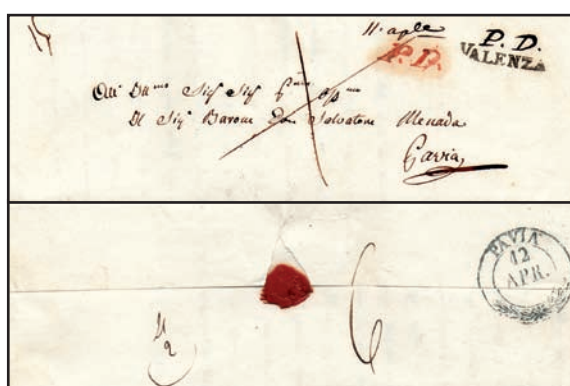 11. aple
P. D.
P. D.
VALENZA
Sig Sig
Il Sig Barone Don Salvatore Menada
Pavia
PAVIA
12
APR.
6